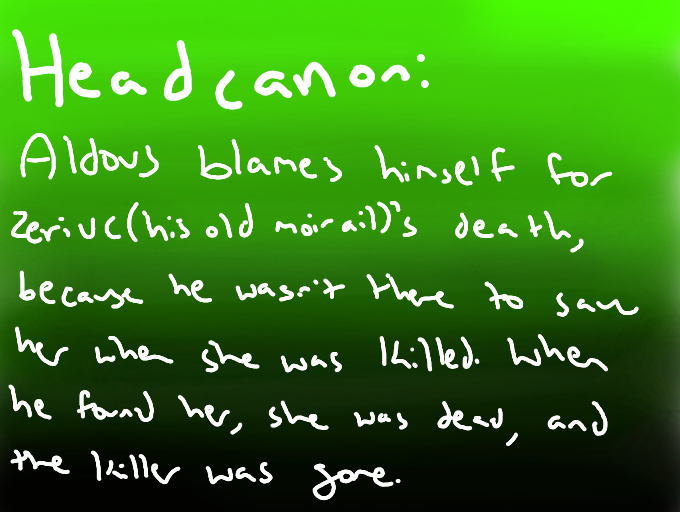 Headcanon:
Aldous blames himself for
Zeriuc(his old moirail)'s death,
because he wasn't there to save
her when she was killed. When
he found her, she was dead, and
the killer was gone.